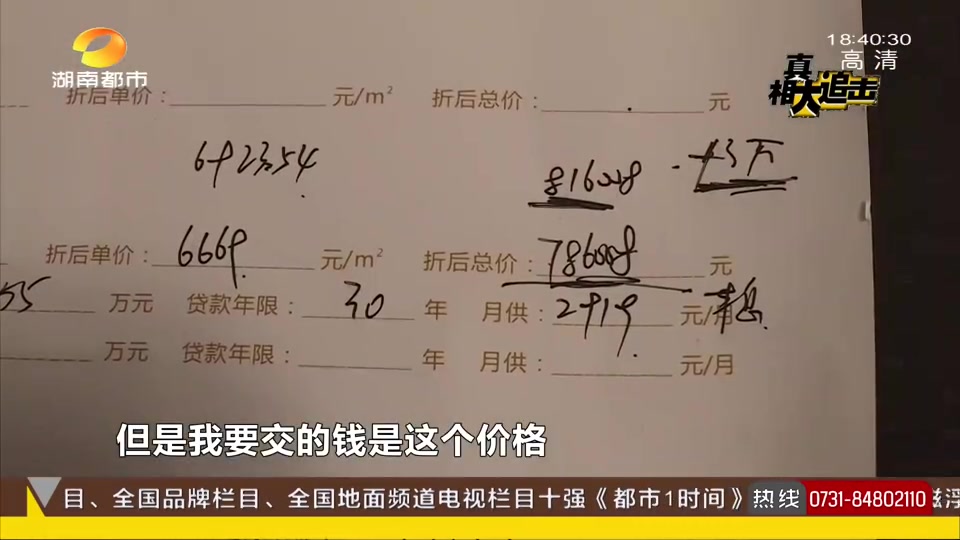 18:40:30
高清
湖南都市
真相大追击
折后单价: 元/m² 折后总价: 元
816008 -+3万
折后单价: 6669 元/m² 折后总价: 786008 元
55 万元 贷款年限: 30 年 月供: 2919 元/月
万元 贷款年限: 年 月供: 元/月
但是我要交的钱是这个价格
目、全国品牌栏目、全国地面频道电视栏目十强《都市1时间》 热线 0731-84802110 磁浮